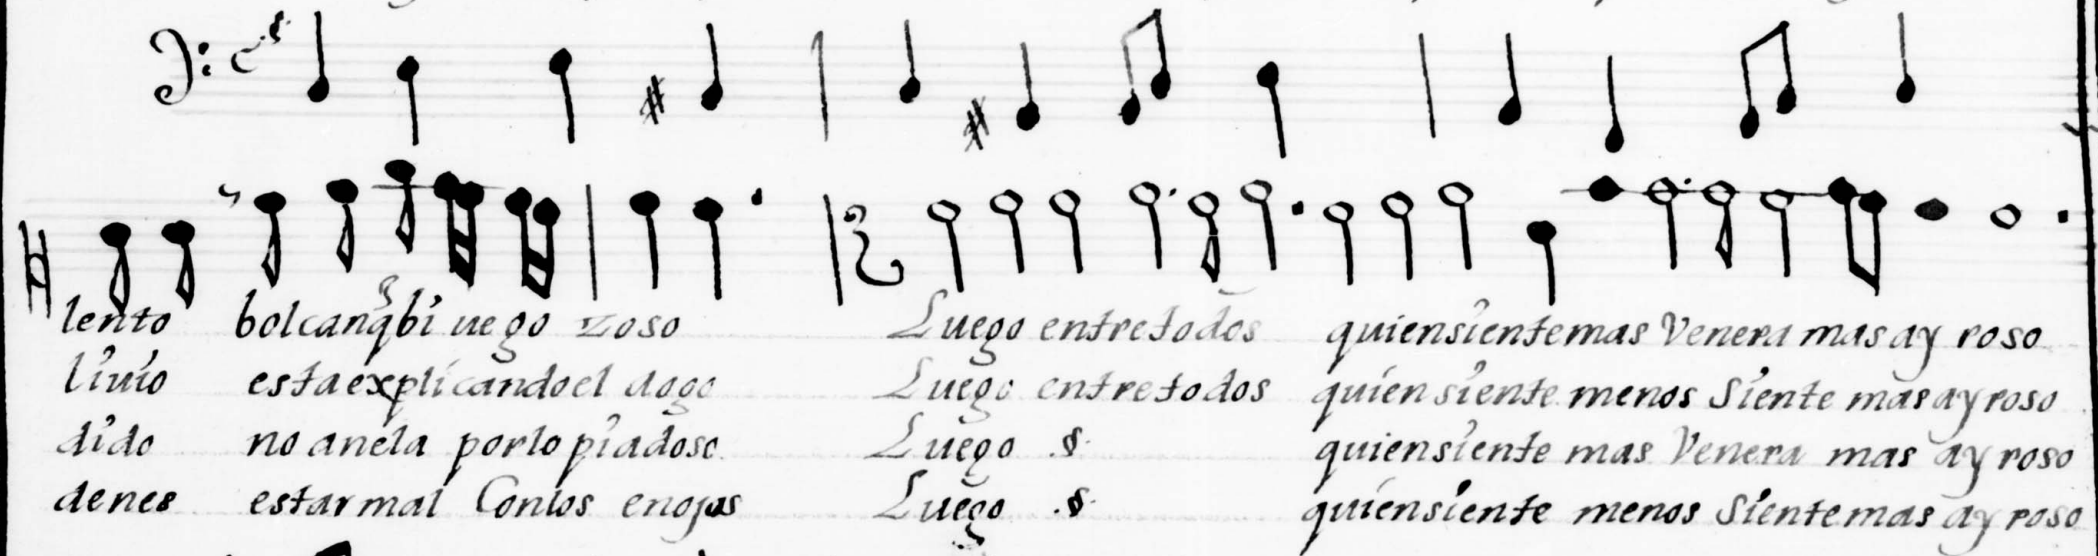 lento bolcan q bi uego zoso Luego entre todos quien siente mas Venera mas ay roso
liuio esta explicando el Luego entre todos quien siente menos Siente mas ay roso
dido no anela por lo piadoso Luego §. quien siente mas Venera mas ay roso
denes estar mal Con los enojos Luego .§. quien siente menos Siente mas ay roso